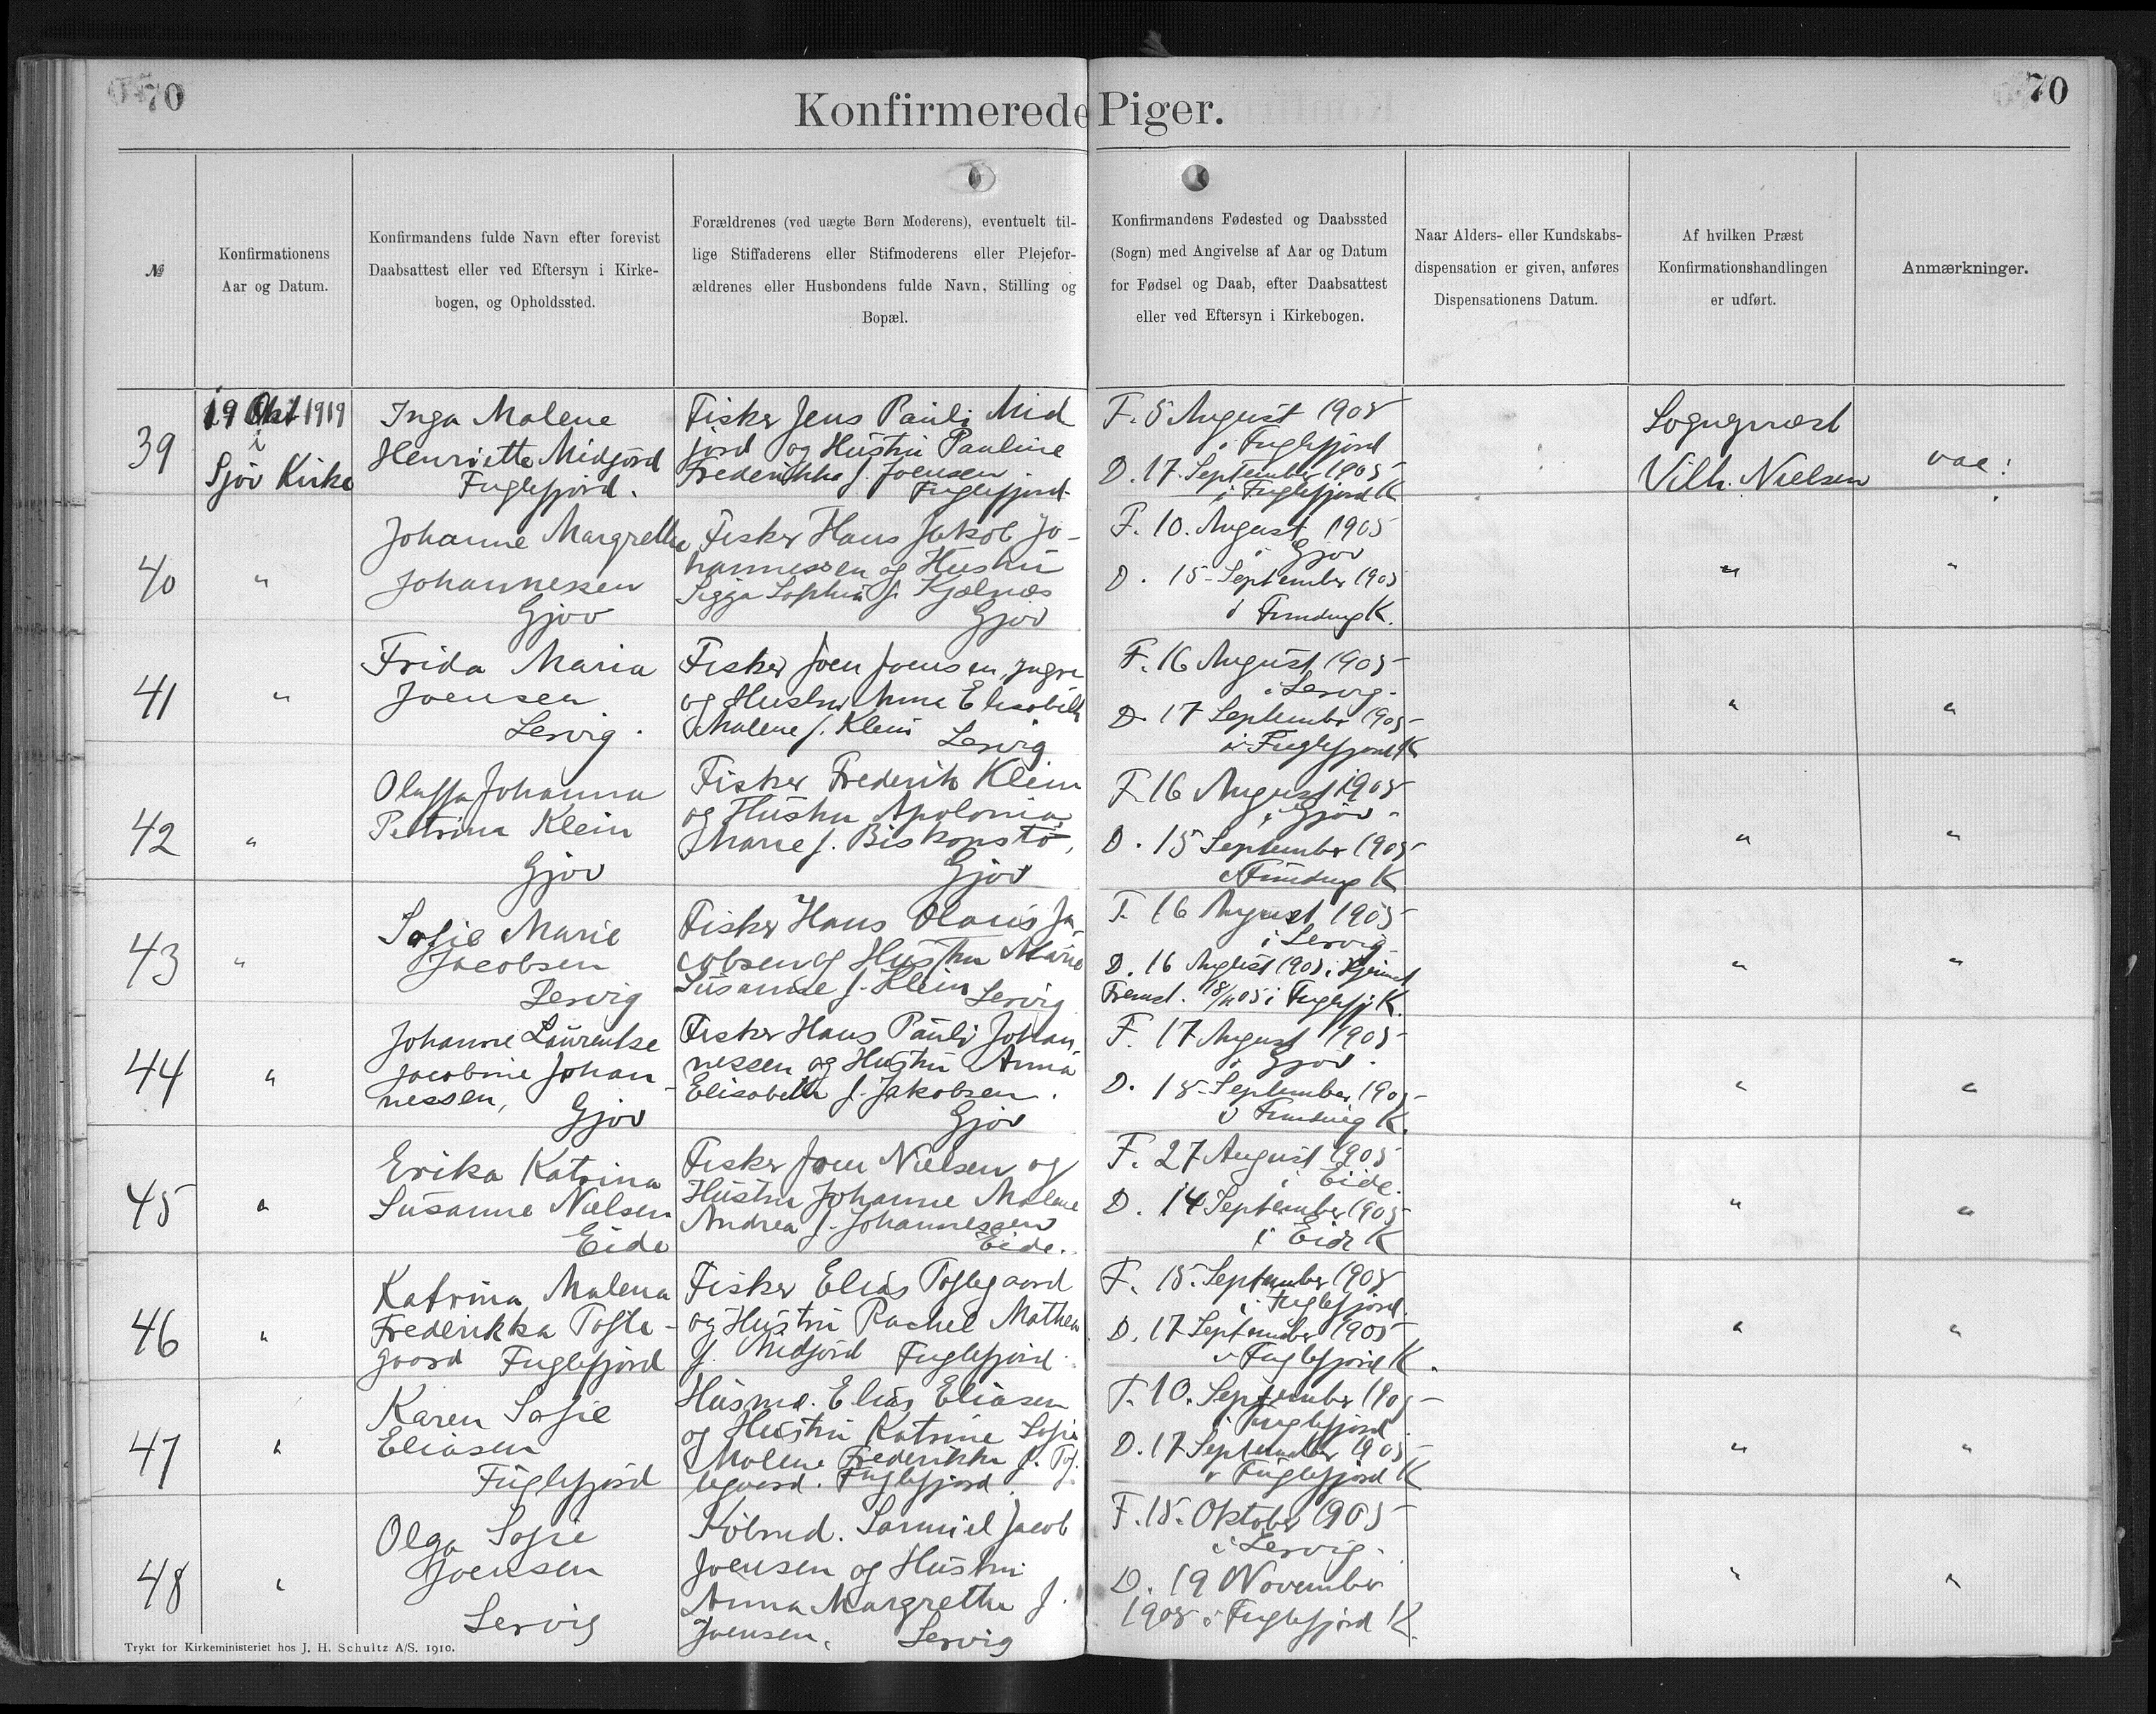 70
Konfirmerede Piger.
70
№
Konfirmationens
Aar og Datum.
Konfirmandens fulde Navn efter forevist
Daabsattest eller ved Eftersyn i Kirke-
bogen, og Opholdssted.
Forældrenes (ved uægte Børn Moderens), eventuelt til-
lige Stiffaderens eller Stifmoderens eller Plejefor-
ældrenes eller Husbondens fulde Navn, Stilling og
Bopæl.
Konfirmandens Fødested og Daabssted
(Sogn) med Angivelse af Aar og Datum
for Fødsel og Daab, efter Daabsattest
eller ved Eftersyn i Kirkebogen.
Naar Alders- eller Kundskabs-
dispensation er given, anføres
Dispensationens Datum.
Af hvilken Præst
Konfirmationshandlingen
er udført.
Anmærkninger.
39
19 Okt 1919
i
Gjov Kirke
Inga Malene
Henriette Midjord
Fuglefjord.
Fisker Jens Pauli Mid
jord og Hustru Pauline
Frederikka f. Joensen
Fuglefjord.
F. 5 August 1905
i Fuglefjord
D. 17. September 1905
i Fuglefjord K
Sognepræst
Vilh. Nielsen
vac:
40
"
Johanne Margrethe
Johannessen
Gjov
Fisker Hans Jakob Jo-
hannessen og Hustru
Sigga Sophia f. Kjælnæs
Gjov
F. 10. August 1905
i Gjov
D. 15 September 1905
i Funding K.
"
"
41
"
Frida Maria
Joensen
Lervig.
Fisker Joen Joensen, yngre
og Hustru Anna Elisabeth
Malene f. Klein
Lervig
F. 16 August 1905
i Lervig.
D. 17 September 1905
i Fuglefjord K
"
"
42
"
Olaffa Johanna
Petrina Klein
Gjov
Fisker Frederik Klein
og Hustru Apolonia
Marie f. Biskopstø,
Gjov
F. 16 August 1905
i Gjov
D. 15 September 1905
i Funding K
"
"
43
"
Sofie Marie
Jacobsen
Lervig
Fisker Hans Olaus Ja
cobsen og Hustru Marie
Susanne f. Klein Lervig
F. 16 August 1905
i Lervig
D. 16 August 1905 i Hjemmet
Fremst. i Fuglefj. K.
"
"
44
"
Johanne Laurentse
Jacobine Johan-
nessen, Gjov
Fisker Hans Pauli Johan
nessen og Hustru Anna
Elisabeth f. Jakobsen.
Gjov
F. 17 August 1905
i Gjov.
D. 15 September 1905
i Funding K.
"
"
45
"
Erika Katrina
Susanne Nielsen
Eide
Fisker Joen Nielsen og
Hustru Johanne Malene
Andrea f. Johannessen
Eide.
F. 27 August 1905
i Eide.
D. 14 September 1905
i Eide K
"
"
46
"
Katrina Malena
Frederikka Tofte-
gaard Fuglefjord
Fisker Elias Toftegaard
og Hustru Rachel Mathea
f. Midjord Fuglefjord.
F. 15. September 1905
i Fuglefjord.
D. 17 September 1905
i Fuglefjord K.
"
"
47
"
Karen Sofie
Eliasen
Fuglefjord
Husmd. Elias Eliasen
og Hustru Katrine Sofie
Malene Frederikka f. Tof-
tegaard. Fuglefjord.
F. 10. September 1905
i Fuglefjord
D. 17 September 1905
i Fuglefjord K
"
"
48
"
Olga Sofie
Joensen
Lervig
Købmd. Samuel Jacob
Joensen og Hustru
Anna Margrethe f.
Joensen, Lervig
F. 15. Oktober 1905
i Lervig.
D. 19 November
1905 i Fuglefjord K.
"
"
Trykt for Kirkeministeriet hos J. H. Schultz A/S. 1910.